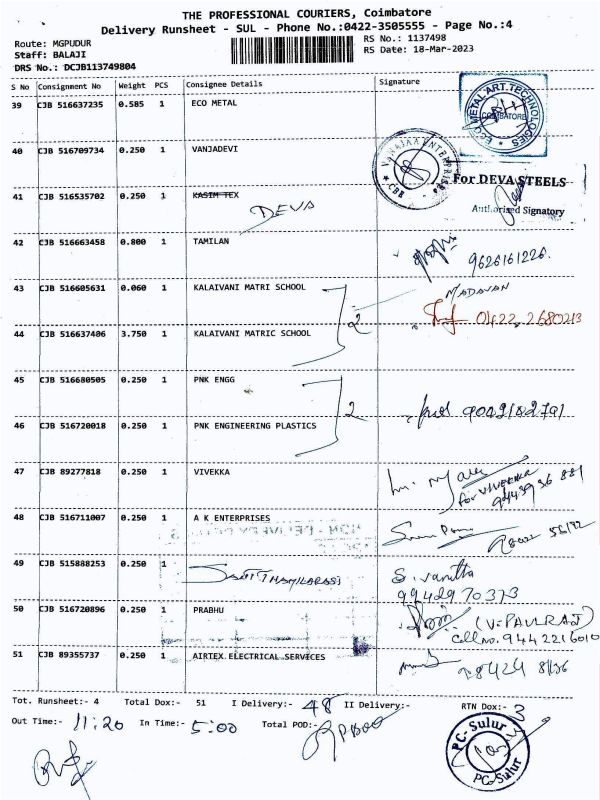 THE PROFESSIONAL COURIERS, Coimbatore
Delivery Runsheet - SUL - Phone No.:0422-3505555 - Page No.:4
Route: MGPUDUR RS No.: 1137498
Staff: BALAJI RS Date: 18-Mar-2023
DRS No.: DCJB113749804
S No Consignment No Weight PCS Consignee Details Signature
39 CJB 516637235 0.585 1 ECO METAL
ECO METAL ART TECHNOLOGIES COIMBATORE
40 CJB 516709734 0.250 1 VANJADEVI
For DEVA STEELS
41 CJB 516535702 0.250 1 KASIM TEX
DEVA Authorised Signatory
42 CJB 516663458 0.800 1 TAMILAN
9626161226.
43 CJB 516605631 0.060 1 KALAIVANI MATRI SCHOOL MADAVAN
2 0422 2680213
44 CJB 516637406 3.750 1 KALAIVANI MATRIC SCHOOL
45 CJB 516680505 0.250 1 PNK ENGG
2
46 CJB 516720018 0.250 1 PNK ENGINEERING PLASTICS
47 CJB 89277818 0.250 1 VIVEKKA
for VIVEKKA
48 CJB 516711007 0.250 1 A K ENTERPRISES
49 CJB 515888253 0.250 1 S. Vanitha
9942970373
50 CJB 516720896 0.250 1 PRABHU (V-PAULRAJ)
Cell no. 9442216010
51 CJB 89355737 0.250 1 AIRTEX ELECTRICAL SERVICES
Tot. Runsheet:- 4 Total Dox:- 51 I Delivery:- 48 II Delivery:- RTN Dox:- 3
Out Time:- 11:20 In Time:- 5:00 Total POD:-
PC- Sulur
PC- Sulur